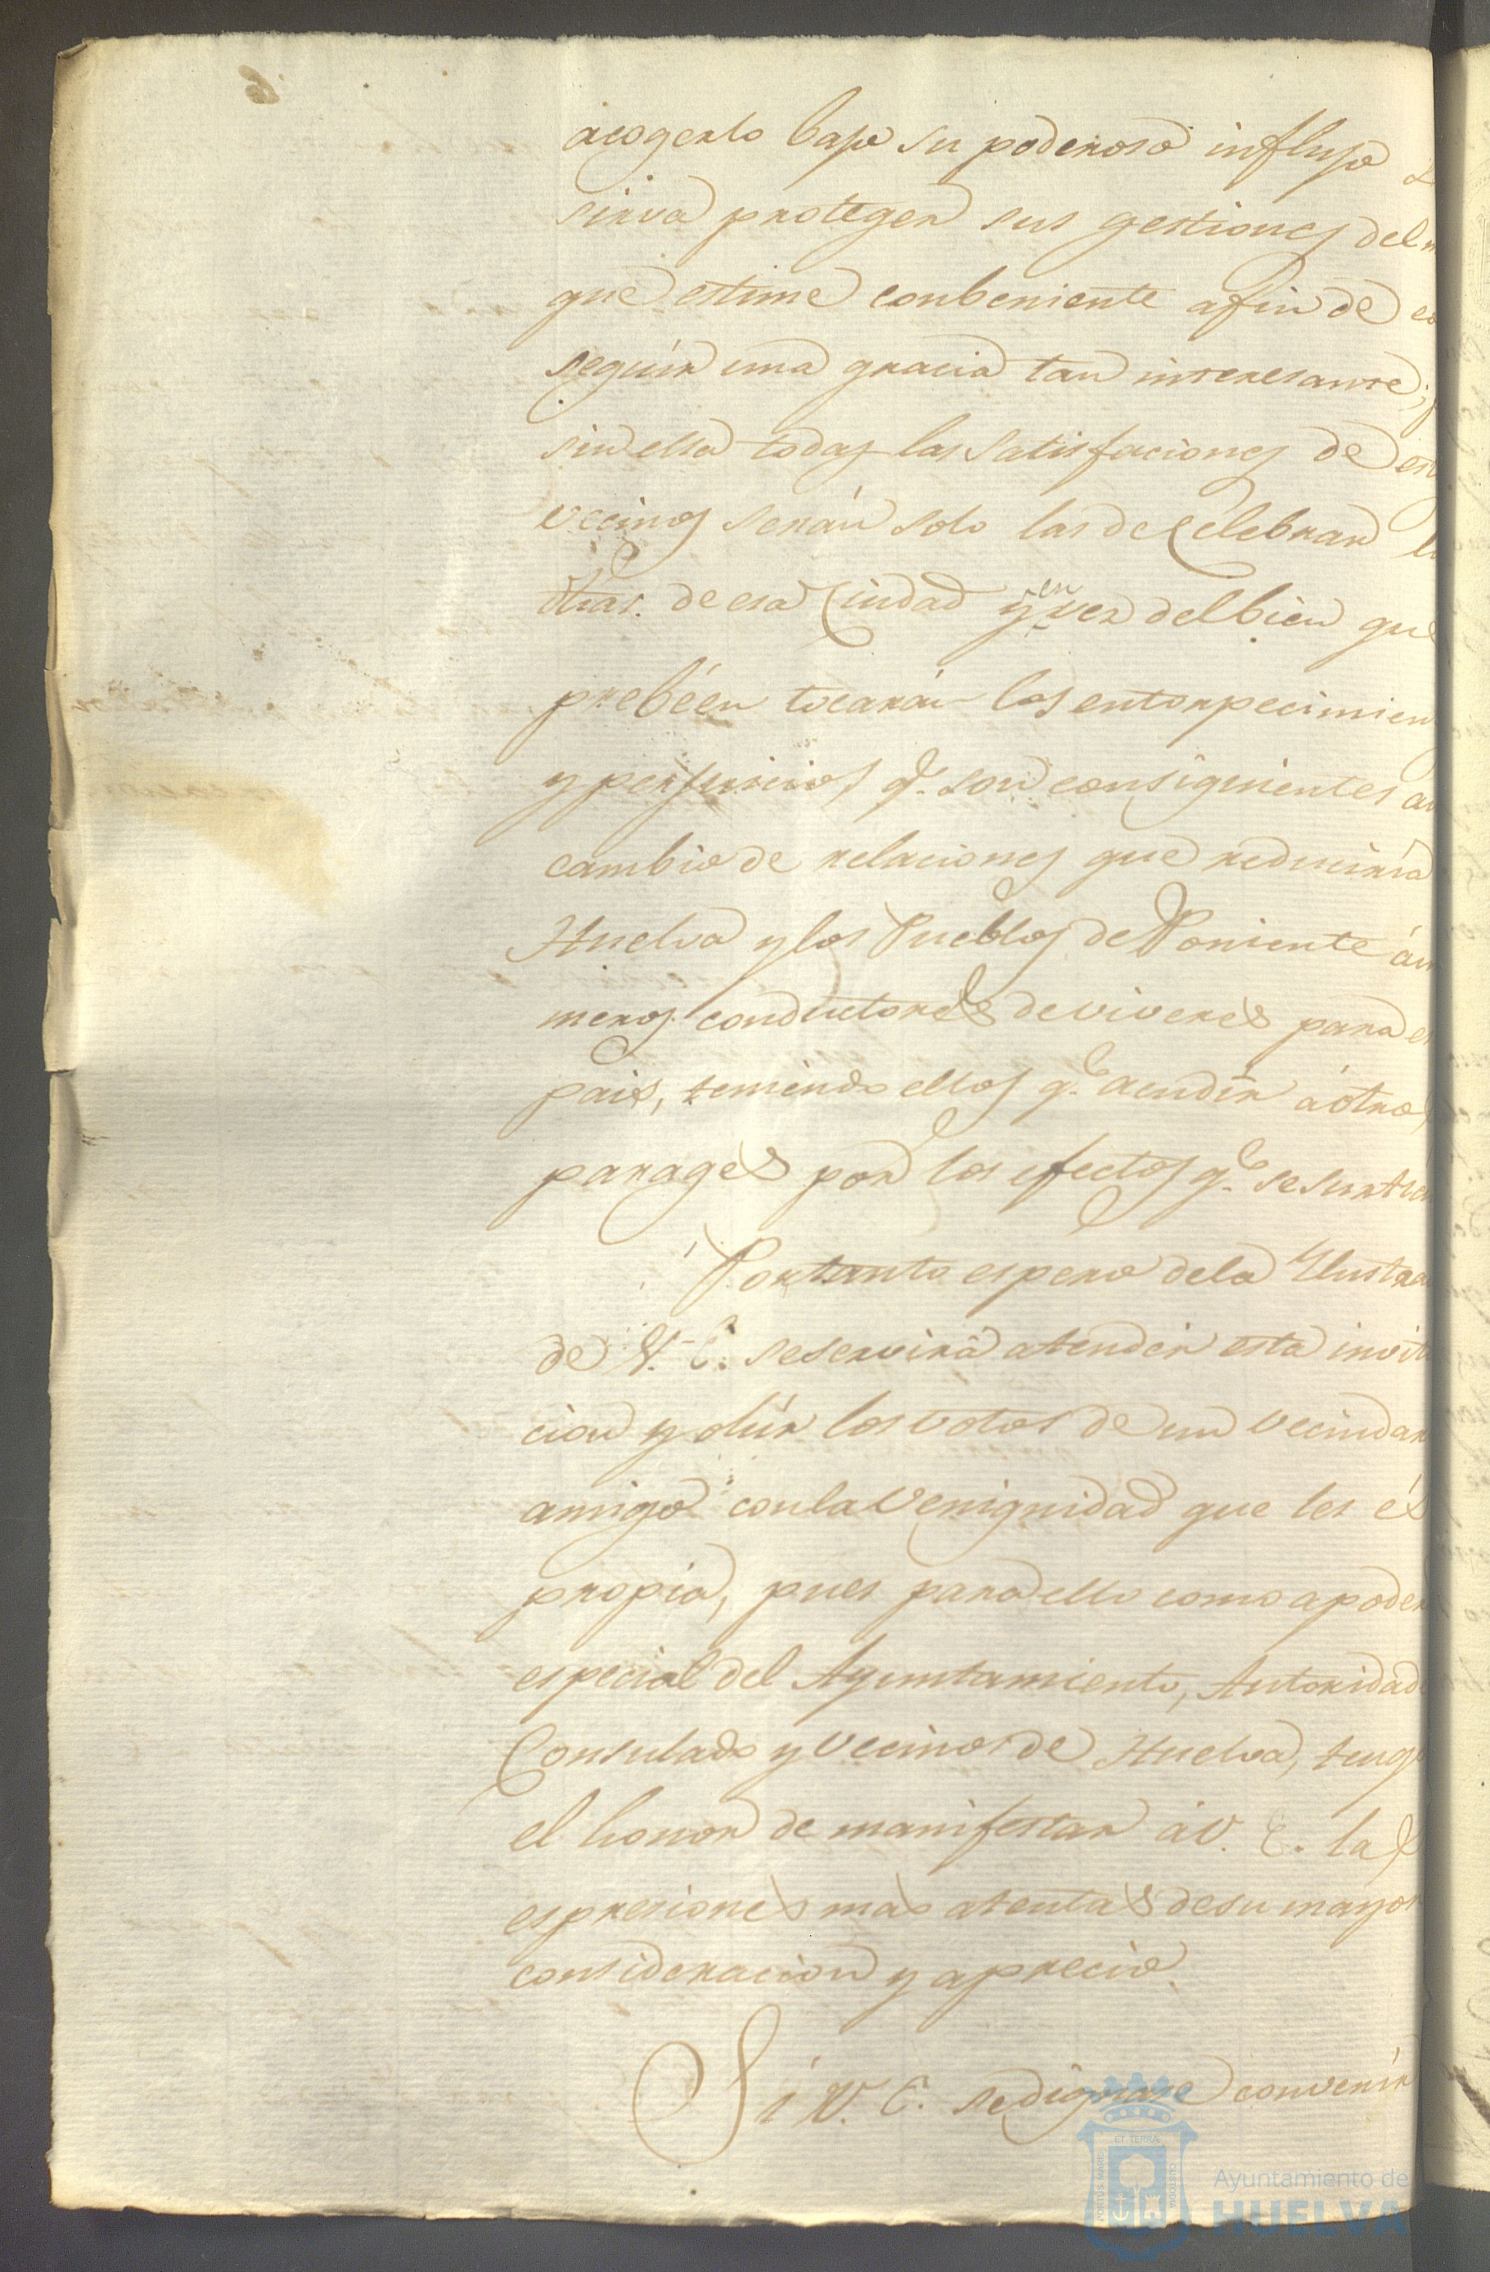 acogerlo bajo su poderoso influjo
sirva proteger sus gestiones del
que estime conbeniente afin de co
seguir una gracia tan interesante;
sin ella todas las satisfaciones de es
vecinos serán solo las de Celebrar
otras de esa Ciudad y en vez del bien que
prebéen tocarán los entorpecimien
y perjuicios q.e son consiguientes
cambio de relaciones que reduciria
Huelva y los Pueblos de Poniente á
meros conductores de viveres para
pais, teniendo ellos q.e acudir á otro
parages por los efectos q.e se surten
Por tanto espero de la Ylustra
de V. E. se servirá atender esta invita
cion y oiir los votos de un vecindar
amigo con la venignidad que les és
propia, pues para ello como apoder
especial del Ayuntamiento, Autoridad
Consulado y vecinos de Huelva, tengo
el honor de manifestar á V. E. las
espresiones mas atentas de su mayor
consideracion y aprecio.
Si V. E. se dignase convenir
PORTUS MARIS ET TERRAE CUSTODIA
Ayuntamiento de
HUELVA